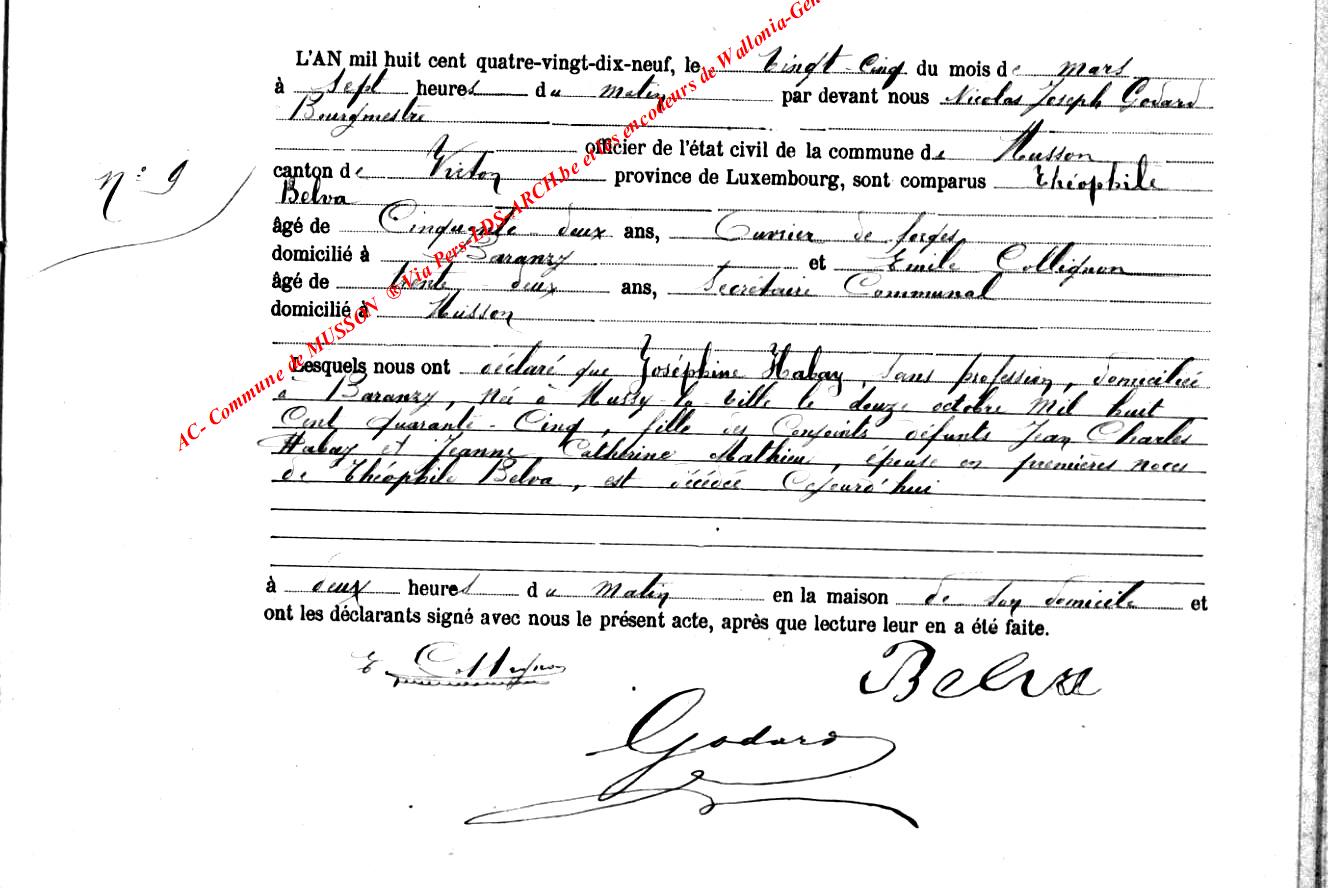 L'AN mil huit cent quatre-vingt-dix-neuf, le Vingt-Cinq du mois de Mars
à Sept heures du matin par devant nous Nicolas Joseph Godard
Bourgmestre
officier de l'état civil de la commune de Musson
N° 9
canton de Virton province de Luxembourg, sont comparus Théophile
Belva
âgé de Cinquante deux ans, Ouvrier de forges
domicilié à Baranzy et Emile Collignon
âgé de trente deux ans, Secrétaire Communal
domicilié à Musson
Lesquels nous ont déclaré que Joséphine Habay, sans profession, domiciliée
à Baranzy, née à Mussy-la-Ville le douze octobre Mil huit
Cent quarante-Cinq, fille des Conjoints défunts Jean Charles
Habay et Jeanne Cathérine Mathieu, épouse en premières noces
de Théophile Belva, est décédée Cejourd'hui
à deux heures du matin en la maison de son domicile et
ont les déclarants signé avec nous le présent acte, après que lecture leur en a été faite.
E Collignon
Belva
Godard
AC- Commune de MUSSON ® Via Pers-LDS-ARCH.be et les encodeurs de Wallonia-Gen